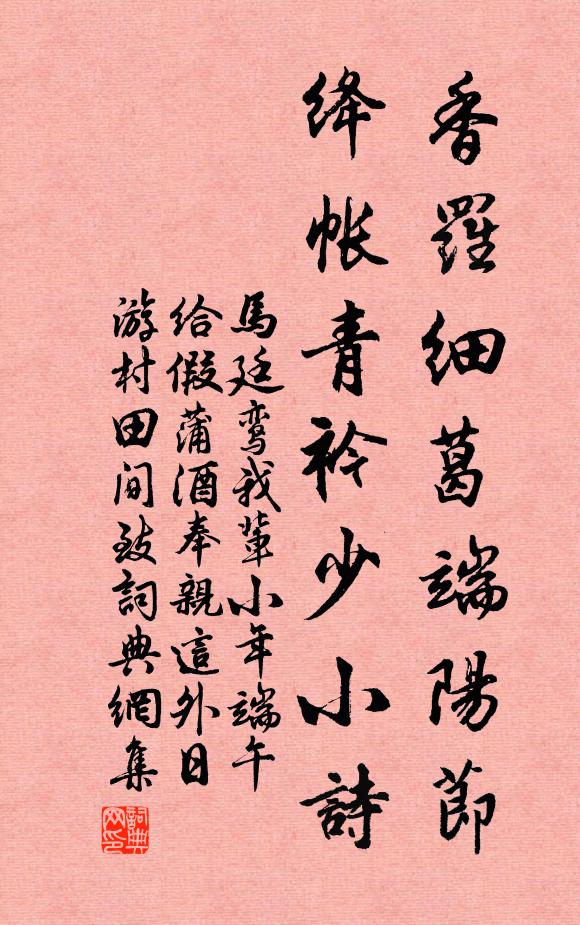 香羅細葛端陽節
絳帳青衿少小詩
馬廷鸾我輩小年端午
给假蒲酒奉親這外日
游村田间致詞典網集
詞典网印